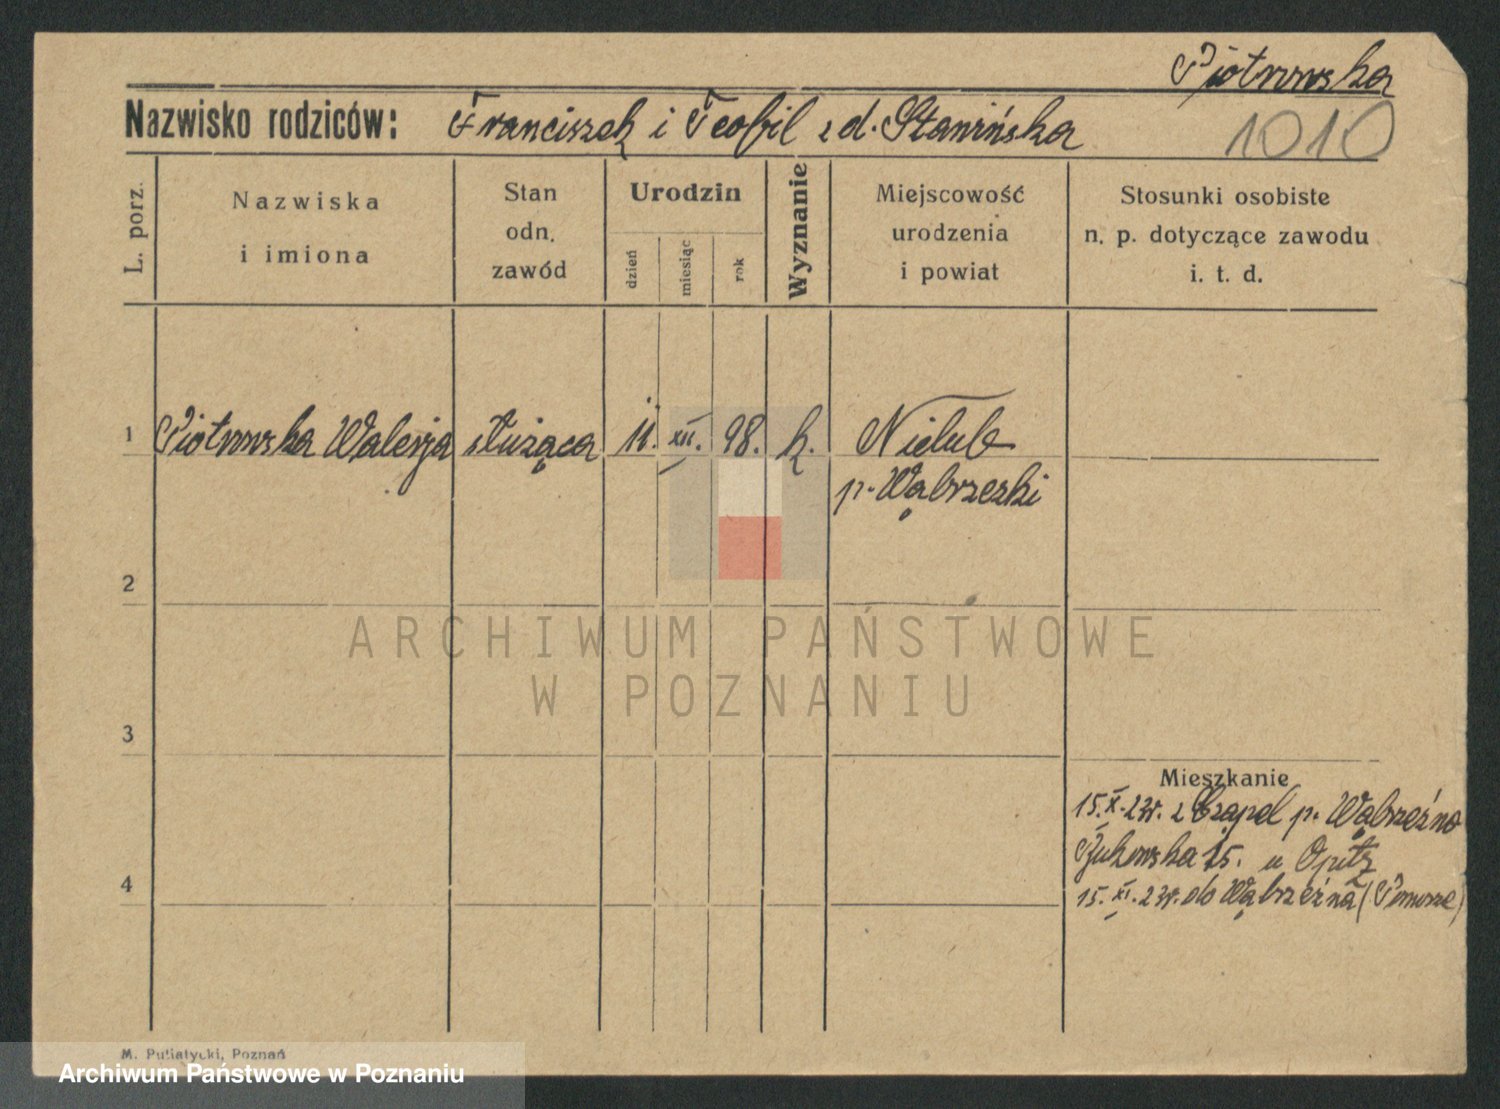 Piotrowska
Nazwisko rodziców: Franciszek i Teofil z d. Stanińska
1010
L. porz.
Nazwiska
i imiona
Stan
odn.
zawód
Urodzin
dzień
miesiąc
rok
Wyznanie
Miejscowość
urodzenia
i powiat
Stosunki osobiste
n. p. dotyczące zawodu
i. t. d.
1 Piotrowska Walerja służąca 11. XII. 98. k. Nielub
p. Wąbrzeski
2
3
Mieszkanie
15.X.23r. z Czapel p. Wąbrzeźno
Bukowska 15. u Opitz
4
15.XI.23r. do Wąbrzeźna (Pomorze)
M. Putiatycki, Poznań
ARCHIWUM PAŃSTWOWE
W POZNANIU
Archiwum Państwowe w Poznaniu